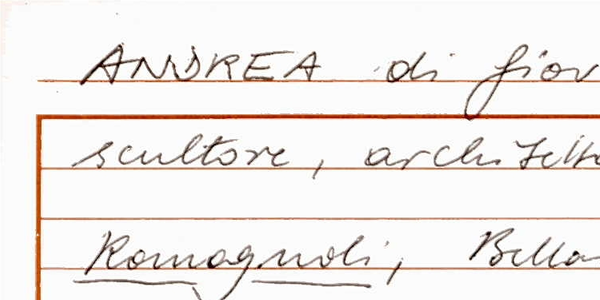 ANDREA di Giov
scultore, architetto
Romagnoli, Bella